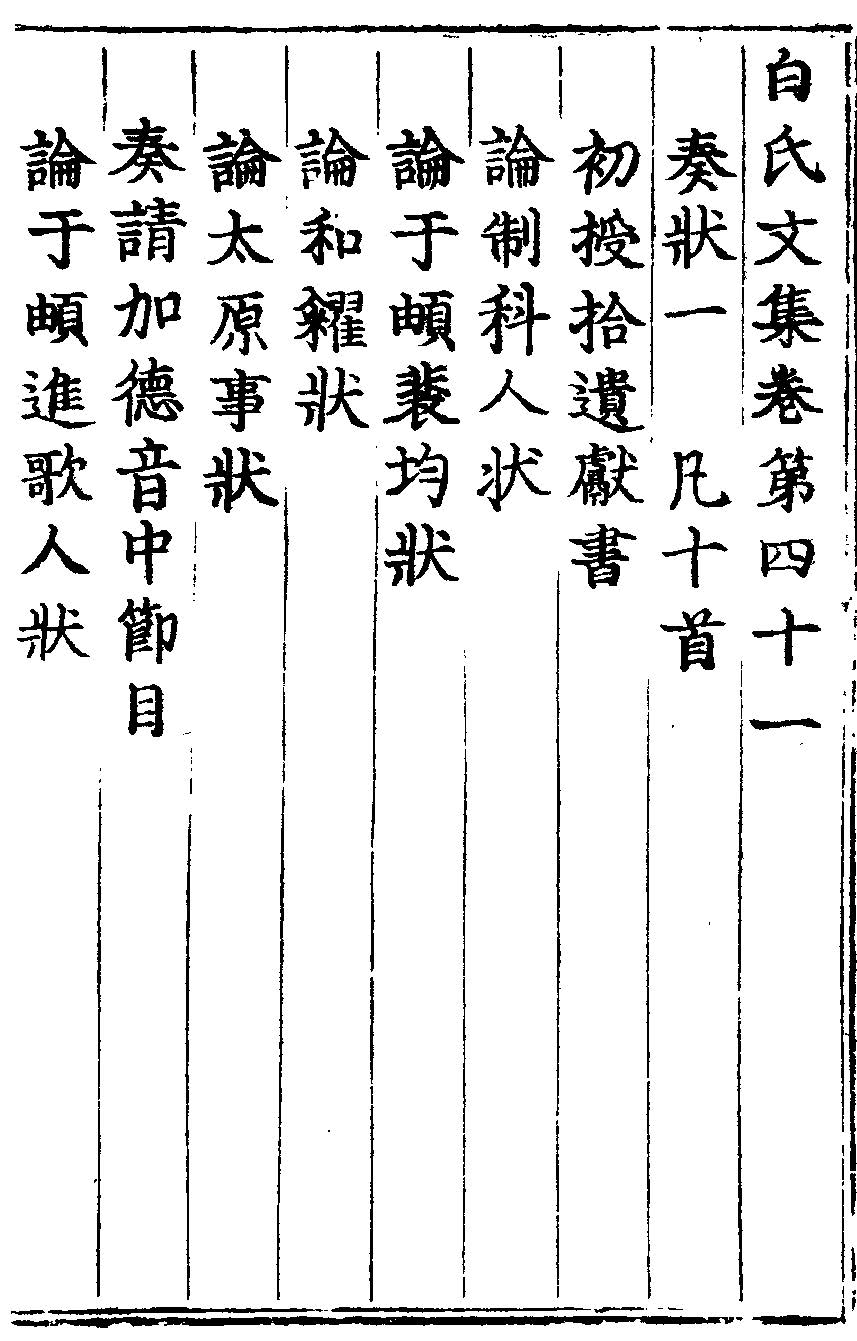 白氏文集卷第四十一
奏狀一 凡十首
初授拾遺獻書
論制科人狀
論于頔裴均狀
論和糴狀
論太原事狀
奏請加德音中節目
論于頔進歌人狀